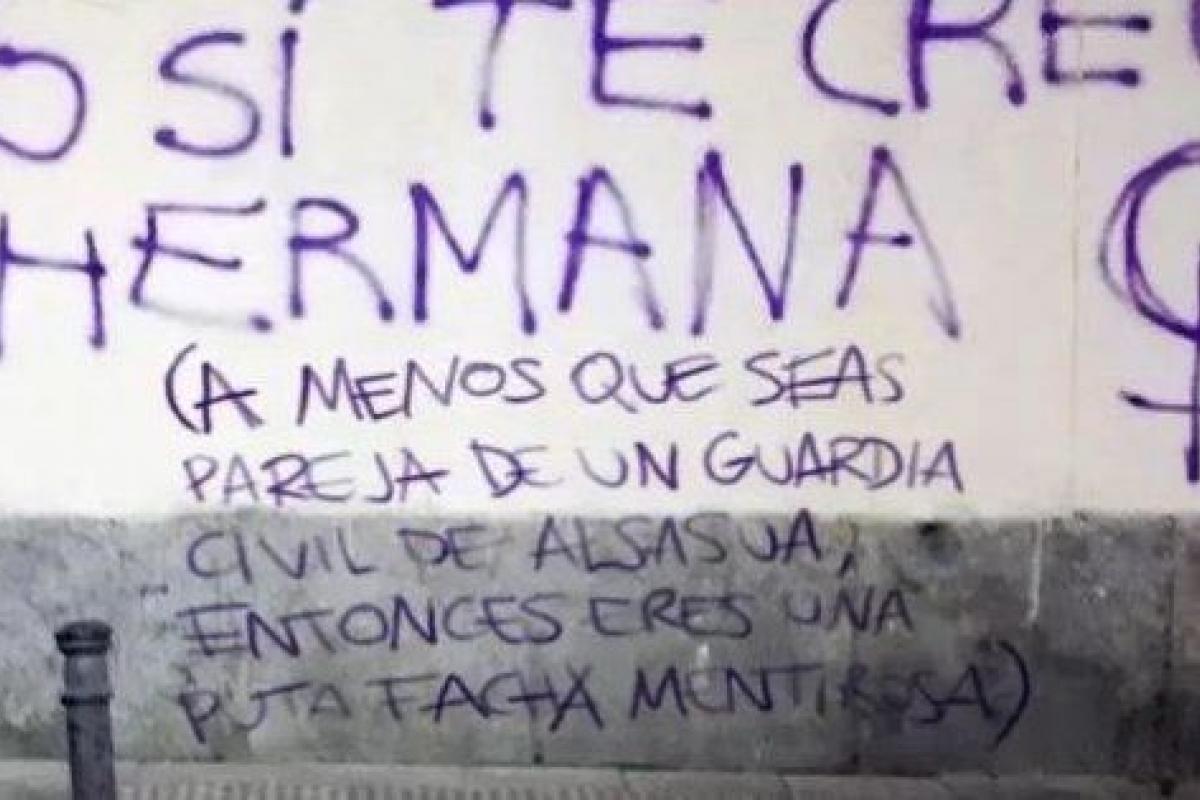 O SÍ TE CREO
HERMANA
(A MENOS QUE SEAS
PAREJA DE UN GUARDIA
CIVIL DE ALSASUA,
ENTONCES ERES UNA
PUTA FACHA MENTIROSA)